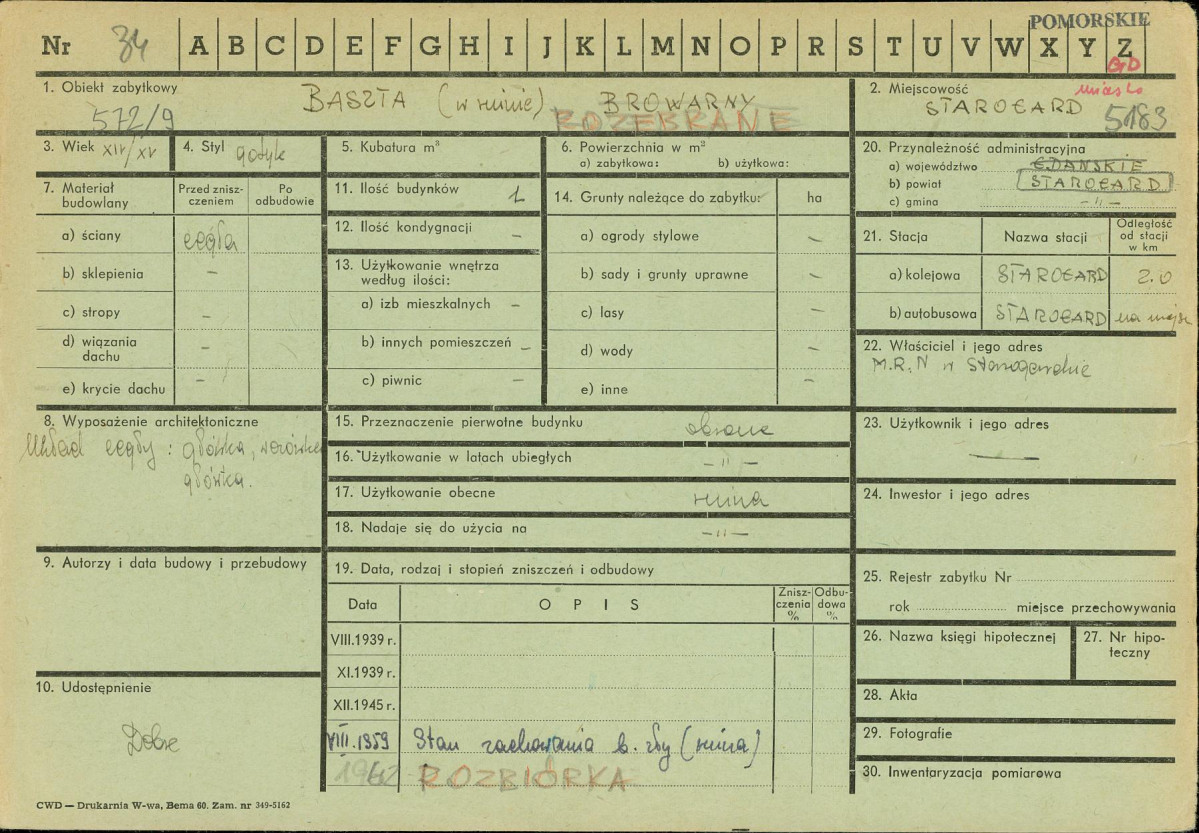 POMORSKIE
Nr 34 A B C D E F G H I J K L M N O P R S T U V W X Y Z
GD
1. Obiekt zabytkowy BASZTA (w ruinie) BROWARNY
572/9 ROZEBRANE
2. Miejscowość miasto
STAROGARD 5183
3. Wiek XIV/XV
4. Styl gotyk
5. Kubatura m³
6. Powierzchnia w m²
a) zabytkowa: b) użytkowa:
20. Przynależność administracyjna
a) województwo GDAŃSKIE
b) powiat STAROGARD
c) gmina -"-
7. Materiał budowlany
Przed zniszczeniem
Po odbudowie
a) ściany cegła
b) sklepienia –
c) stropy –
d) wiązania dachu –
e) krycie dachu –
11. Ilość budynków 1
12. Ilość kondygnacji –
13. Użytkowanie wnętrza według ilości:
a) izb mieszkalnych –
b) innych pomieszczeń –
c) piwnic –
14. Grunty należące do zabytku: ha
a) ogrody stylowe –
b) sady i grunty uprawne –
c) lasy –
d) wody –
e) inne –
21. Stacja Nazwa stacji Odległość od stacji w km
a) kolejowa STAROGARD 2.0
b) autobusowa STAROGARD na miejsc
22. Właściciel i jego adres
M.R.N w Starogardzie
8. Wyposażenie architektoniczne
Układ cegły: główka, wozówka
główka.
15. Przeznaczenie pierwotne budynku obrona
16. Użytkowanie w latach ubiegłych -"-
17. Użytkowanie obecne ruina
18. Nadaje się do użycia na -"-
23. Użytkownik i jego adres
—
24. Inwestor i jego adres
9. Autorzy i data budowy i przebudowy
19. Data, rodzaj i stopień zniszczeń i odbudowy
Data OPIS Zniszczenia % Odbudowa %
VIII.1939 r.
XI.1939 r.
XII.1945 r.
VIII.1959 Stan zachowania b. zły (ruina)
1962 ROZBIÓRKA
25. Rejestr zabytku Nr
rok miejsce przechowywania
26. Nazwa księgi hipotecznej
27. Nr hipoteczny
10. Udostępnienie
Dobre
28. Akta
29. Fotografie
30. Inwentaryzacja pomiarowa
CWD — Drukarnia W-wa, Bema 60. Zam. nr 349-5162